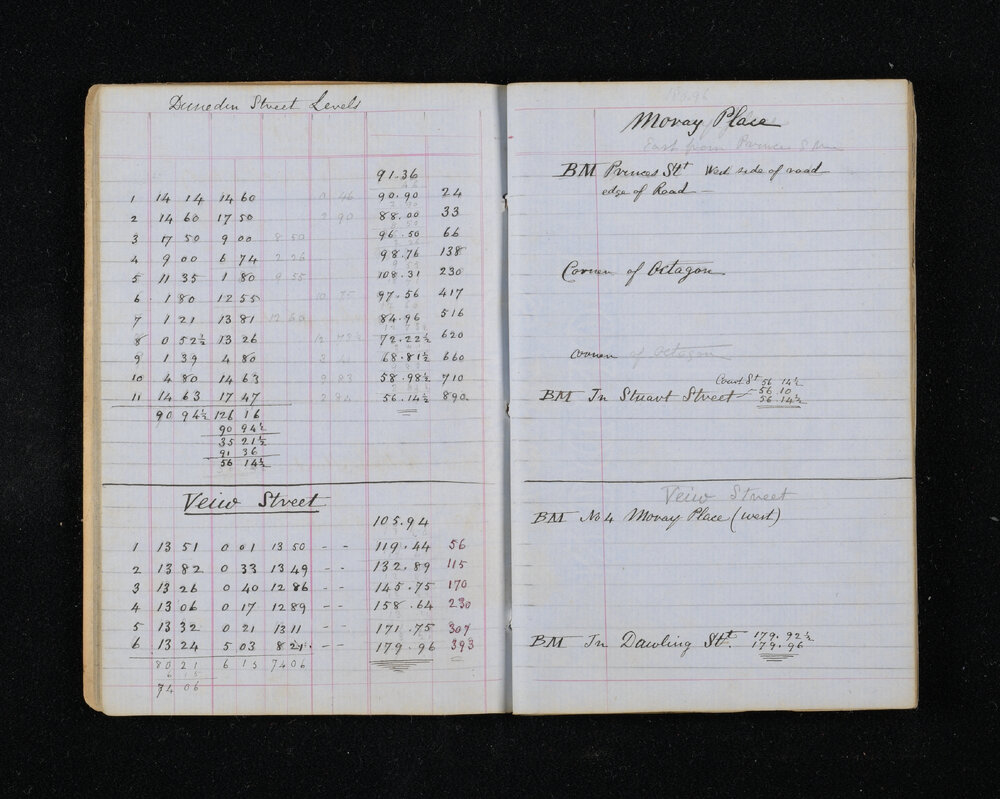 Dunedin Street Levels
91.36
1 14 14 14 60 0 46 90.90 24
2 14 60 17 50 2 90 88.00 33
3 17 50 9 00 8 50 96.50 66
4 9 00 6 74 2 26 98.76 138
5 11 35 1 80 9 55 108.31 230
6 1 80 12 55 10 75 97.56 417
7 1 21 13 81 12 60 84.96 516
8 0 52½ 13 26 12 73½ 72.22½ 620
9 1 39 4 80 3 41 68.81½ 660
10 4 80 14 63 9 83 58.98½ 710
11 14 63 17 47 2 84 56.14½ 890
90 94½ 126 16
90 94½
35 21½
91 36
56 14½
Veiw Street
105.94
1 13 51 0 01 13 50 - - 119.44 56
2 13 82 0 33 13 49 - - 132.89 115
3 13 26 0 40 12 86 - - 145.75 170
4 13 06 0 17 12 89 - - 158.64 230
5 13 32 0 21 13 11 - - 171.75 307
6 13 24 5 03 8 21 - - 179.96 393
80 21 6 15 74 06
6 15
74 06
Moray Place
East from Princes
BM Princes Stt West side of road
edge of Road
Corner of Octagon
corner of Octagon
Court St 56 14½
BM In Stuart Street 56.10
56.14½
Veiw Street
BM No 4 Moray Place (west)
BM In Dawling Stt. 179.92½
179.96